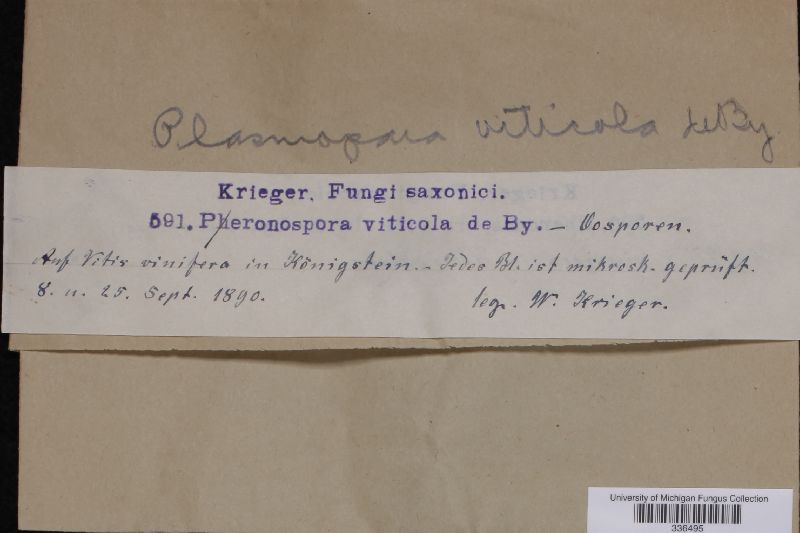 Plasmopara viticola deBy
Krieger, Fungi saxonici.
591. Pheronospora viticola de By. — Oosporen.
Auf Vitis vinifera in Königstein. - Jedes Bl. ist mikrosk. geprüft.
8. u. 25. Sept. 1890.
leg. W. Krieger.
University of Michigan Fungus Collection
336495